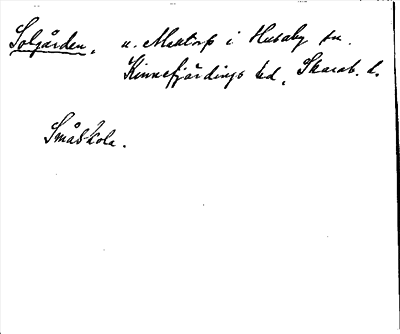 Solgården, u. Mektorp i Husaby sn.
Kinnefjärdings hd, Skarab. l.
Småskola.